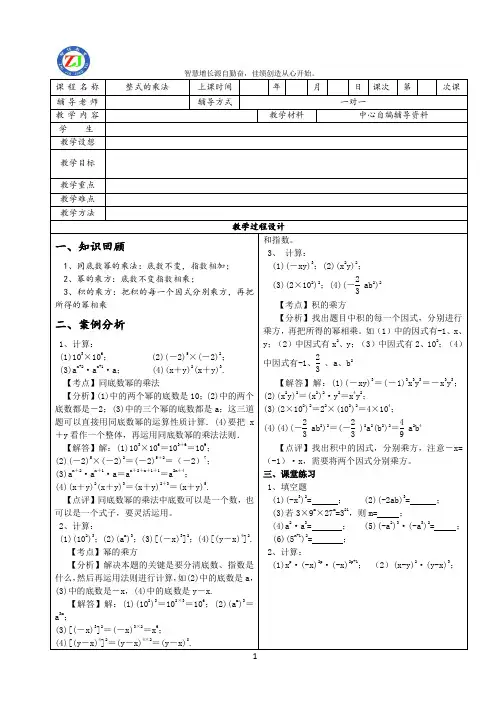 智慧增长源自勤奋，佳绩创造从心开始。
课程名称 整式的乘法 上课时间 年 月 日 课次 第 次课
辅导老师 辅导方式 一对一
教学内容 教学材料 中心自编辅导资料
学 生
教学设想
教学目标
教学重点
教学难点
教学方法
教学过程设计
一、知识回顾
1、同底数幂的乘法：底数不变，指数相加；
2、幂的乘方：底数不变指数相乘；
3、积的乘方：把积的每一个因式分别乘方，再把
所得的幂相乘
二、案例分析
1、计算：
(1)10³×10⁶； (2)(－2)⁵×(－2)²；
(3)aⁿ⁺²·aⁿ⁺¹·a； (4)(x＋y)²(x＋y)³．
【考点】同底数幂的乘法
【分析】(1)中的两个幂的底数是10；(2)中的两个
底数都是－2；(3)中的三个幂的底数都是a；这三道
题可以直接用同底数幂的运算性质计算．(4)要把 x
＋y看作一个整体，再运用同底数幂的乘法法则．
【解答】解：(1)10³×10⁶＝10³⁺⁶＝10⁹；
(2)(－2)⁵×(－2)²＝(－2)⁵⁺²＝（－2）⁷；
(3)aⁿ⁺²·aⁿ⁺¹·a＝aⁿ⁺²⁺ⁿ⁺¹⁺¹＝a²ⁿ⁺⁴；
(4)(x＋y)²(x＋y)³＝(x＋y)²⁺³＝(x＋y)⁵．
【点评】同底数幂的乘法中底数可以是一个数，也
可以是一个式子，要灵活运用。
2、计算：
(1)(10²)³；(2)(aᵐ)³；(3)[(－x)³]²；(4)[(y－x)⁴]²．
【考点】幂的乘方
【分析】解决本题的关键是要分清底数、指数是
什么，然后再运用法则进行计算，如(2)中的底数是a，
(3)中的底数是－x，(4)中的底数是y－x．
【解答】解：(1)(10²)³＝10²ˣ³＝10⁶；(2)(aᵐ)³＝
a³ᵐ；
(3)[(－x)³]²＝(－x)³ˣ²＝x⁶；
(4)[(y－x)⁴]²＝(y－x)⁴ˣ²＝(y－x)⁸．
和指数。
3、 计算：
(1)(－xy)³；(2)(x²y)²；
(3)(2×10²)²；(4)(－2/3 ab²)²
【考点】积的乘方
【分析】找出题目中积的每一个因式，分别进行
乘方，再把所得的幂相乘。如（1）中的因式有-1、x、
y；（2）中因式有 x²、y；（3）中因式有 2、10²；（4）
中因式有-1、2/3 、a、b²
【解答】解：(1)(－xy)³＝(－1)³x³y³＝－x³y³；
(2)(x²y)²＝(x²)²·y²＝x⁴y²；
(3)(2×10²)²＝2²×(10²)²＝4×10⁴；
(4)(4)(－2/3 ab²)²＝(－2/3 )²a²(b²)²＝4/9 a²b⁴
【点评】找出积中的因式，分别乘方。注意－x=
(－1）·x，需要将两个因式分别乘方。
三、课堂练习
1、填空题
(1)(-x³)²= ； (2)(-2ab)³= ；
(3)若3×9ᵐ×27ᵐ=3²¹，则m= ；
(4)a²·a³= ； (5)(-a²)³·(-a³)²= ；
(6)(5ⁿ⁺¹)²= ；
2、计算：
(1)xⁿ·(-x)²ⁿ·(-x)²ⁿ⁺¹； （2）(x-y)²·(y-x)³；
1